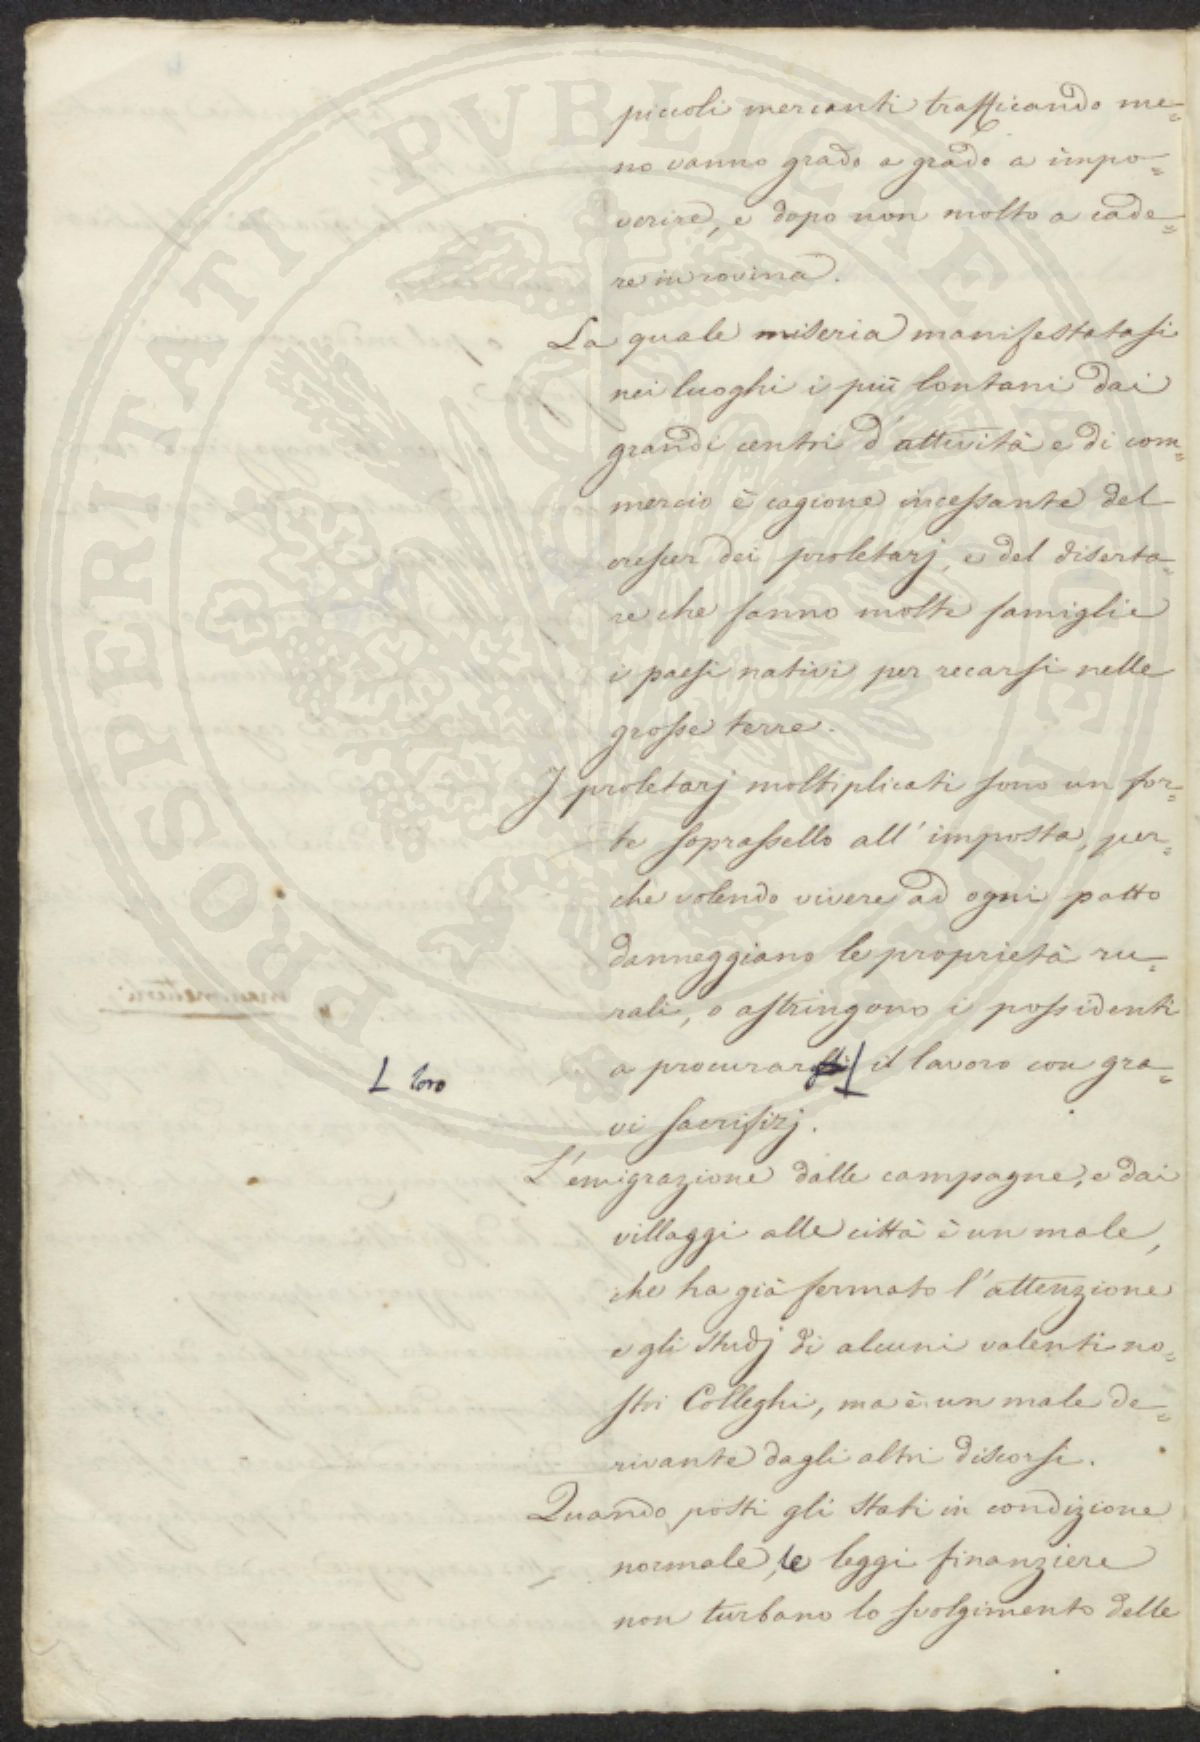 piccoli mercanti trafficando me=
no vanno grado a grado a impo=
verire, e dopo non molto a cade=
re in rovina.
La quale miseria manifestatasi
nei luoghi i più lontani dai
grandi centri d'attività e di com=
mercio è cagione incessante del
crescer dei proletarj, e del diserta=
re che fanno molte famiglie
i paesi nativi per recarsi nelle
grosse terre.
I proletarj moltiplicati sono un for=
te soprassello all'imposta, per=
che volendo vivere ad ogni patto
danneggiano le proprietà ru=
rali, o astringono i possidenti
a procurar il lavoro con gra=
L loro
vi sacrifizj.
L'emigrazione dalle campagne, e dai
villaggi alle città è un male,
che ha già fermato l'attenzione
e gli studj di alcuni valenti no=
stri Colleghi, ma è un male de=
rivante dagli altri discorsi.
Quando posti gli Stati in condizione
normale, le leggi finanziere
non turbano lo svolgimento delle
PROSPERITATI PVBLICAE